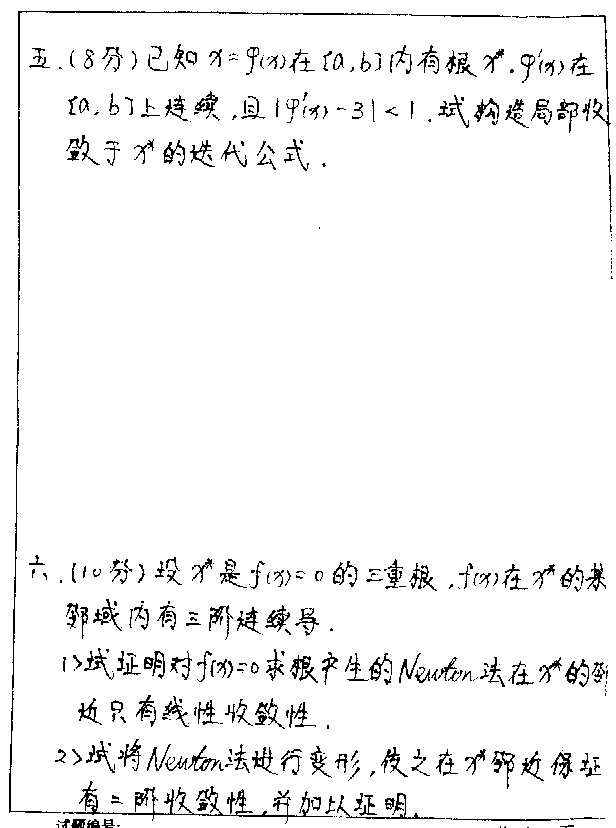 五.(8分)已知x=φ(x)在[a,b]内有根x*.φ'(x)在
[a,b]上连续,且|φ'(x)-3|<1.试构造局部收
敛于x*的迭代公式.
六.(10分)设x*是f(x)=0的三重根.f(x)在x*的某
邻域内有三阶连续导.
1>试证明对f(x)=0求根产生的Newton法在x*的邻
近只有线性收敛性.
2>试将Newton法进行变形,使之在x*邻近保证
有二阶收敛性,并加以证明.
试题编号: